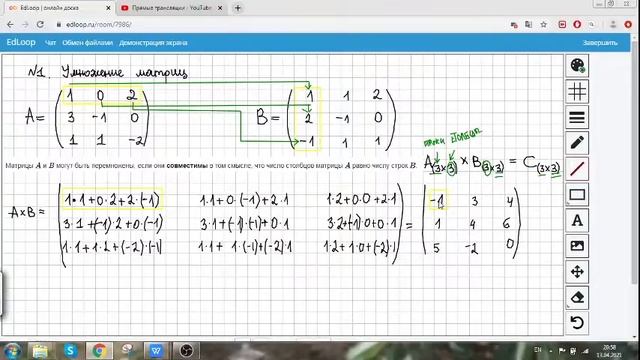 EdLoop | онлайн доска
Прямые трансляции - YouTube
edloop.ru/room/7986/
EdLoop Чат Обмен файлами Демонстрация экрана Завершить
№1. Умножение матриц
A = ( 1 0 2 B = ( 1 1 2
3 -1 0 2 -1 0
1 1 -2 ) -1 1 1 )
строки столбцы
Матрицы A и B могут быть перемножены, если они совместимы в том смысле, что число столбцов матрицы A равно числу строк B.
A (3×3) × B (3×3) = C (3×3)
1·1+0·2+2·(-1) 1·1+0·(-1)+2·1 1·2+0·0+2·1 -1 3 4
A×B = 3·1+(-1)·2+0·(-1) 3·1+(-1)·(-1)+0·1 3·2+(-1)·0+0·1 = 1 4 6
1·1+1·2+(-2)·(-1) 1·1+1·(-1)+(-2)·1 1·2+1·0+(-2)·1 5 -2 0
EN
20:58
13.04.2021